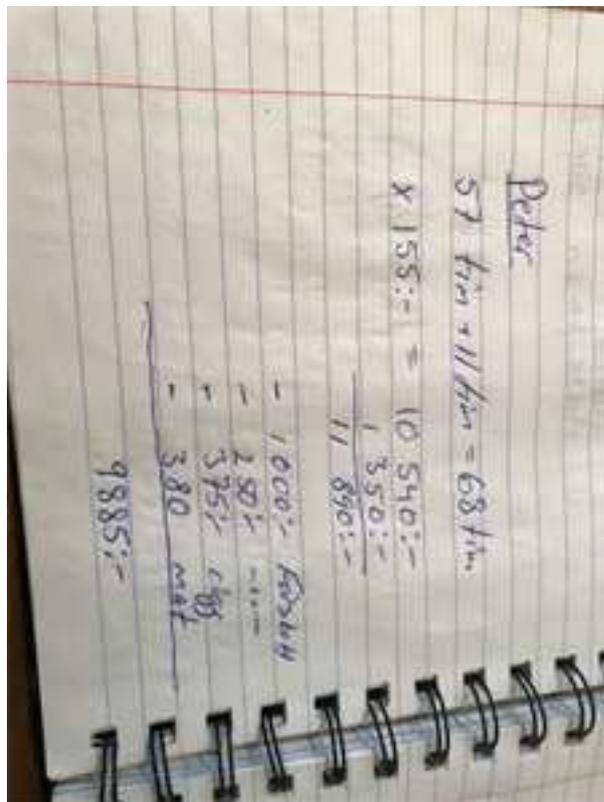 Peter
57 tim + 11 tim = 68 tim
x 155:- = 10 540:-
1 350:-
11 890:-
- 1 000:-
- 250:- -"-
- 375:- cigg
- 380 mat
9885:-